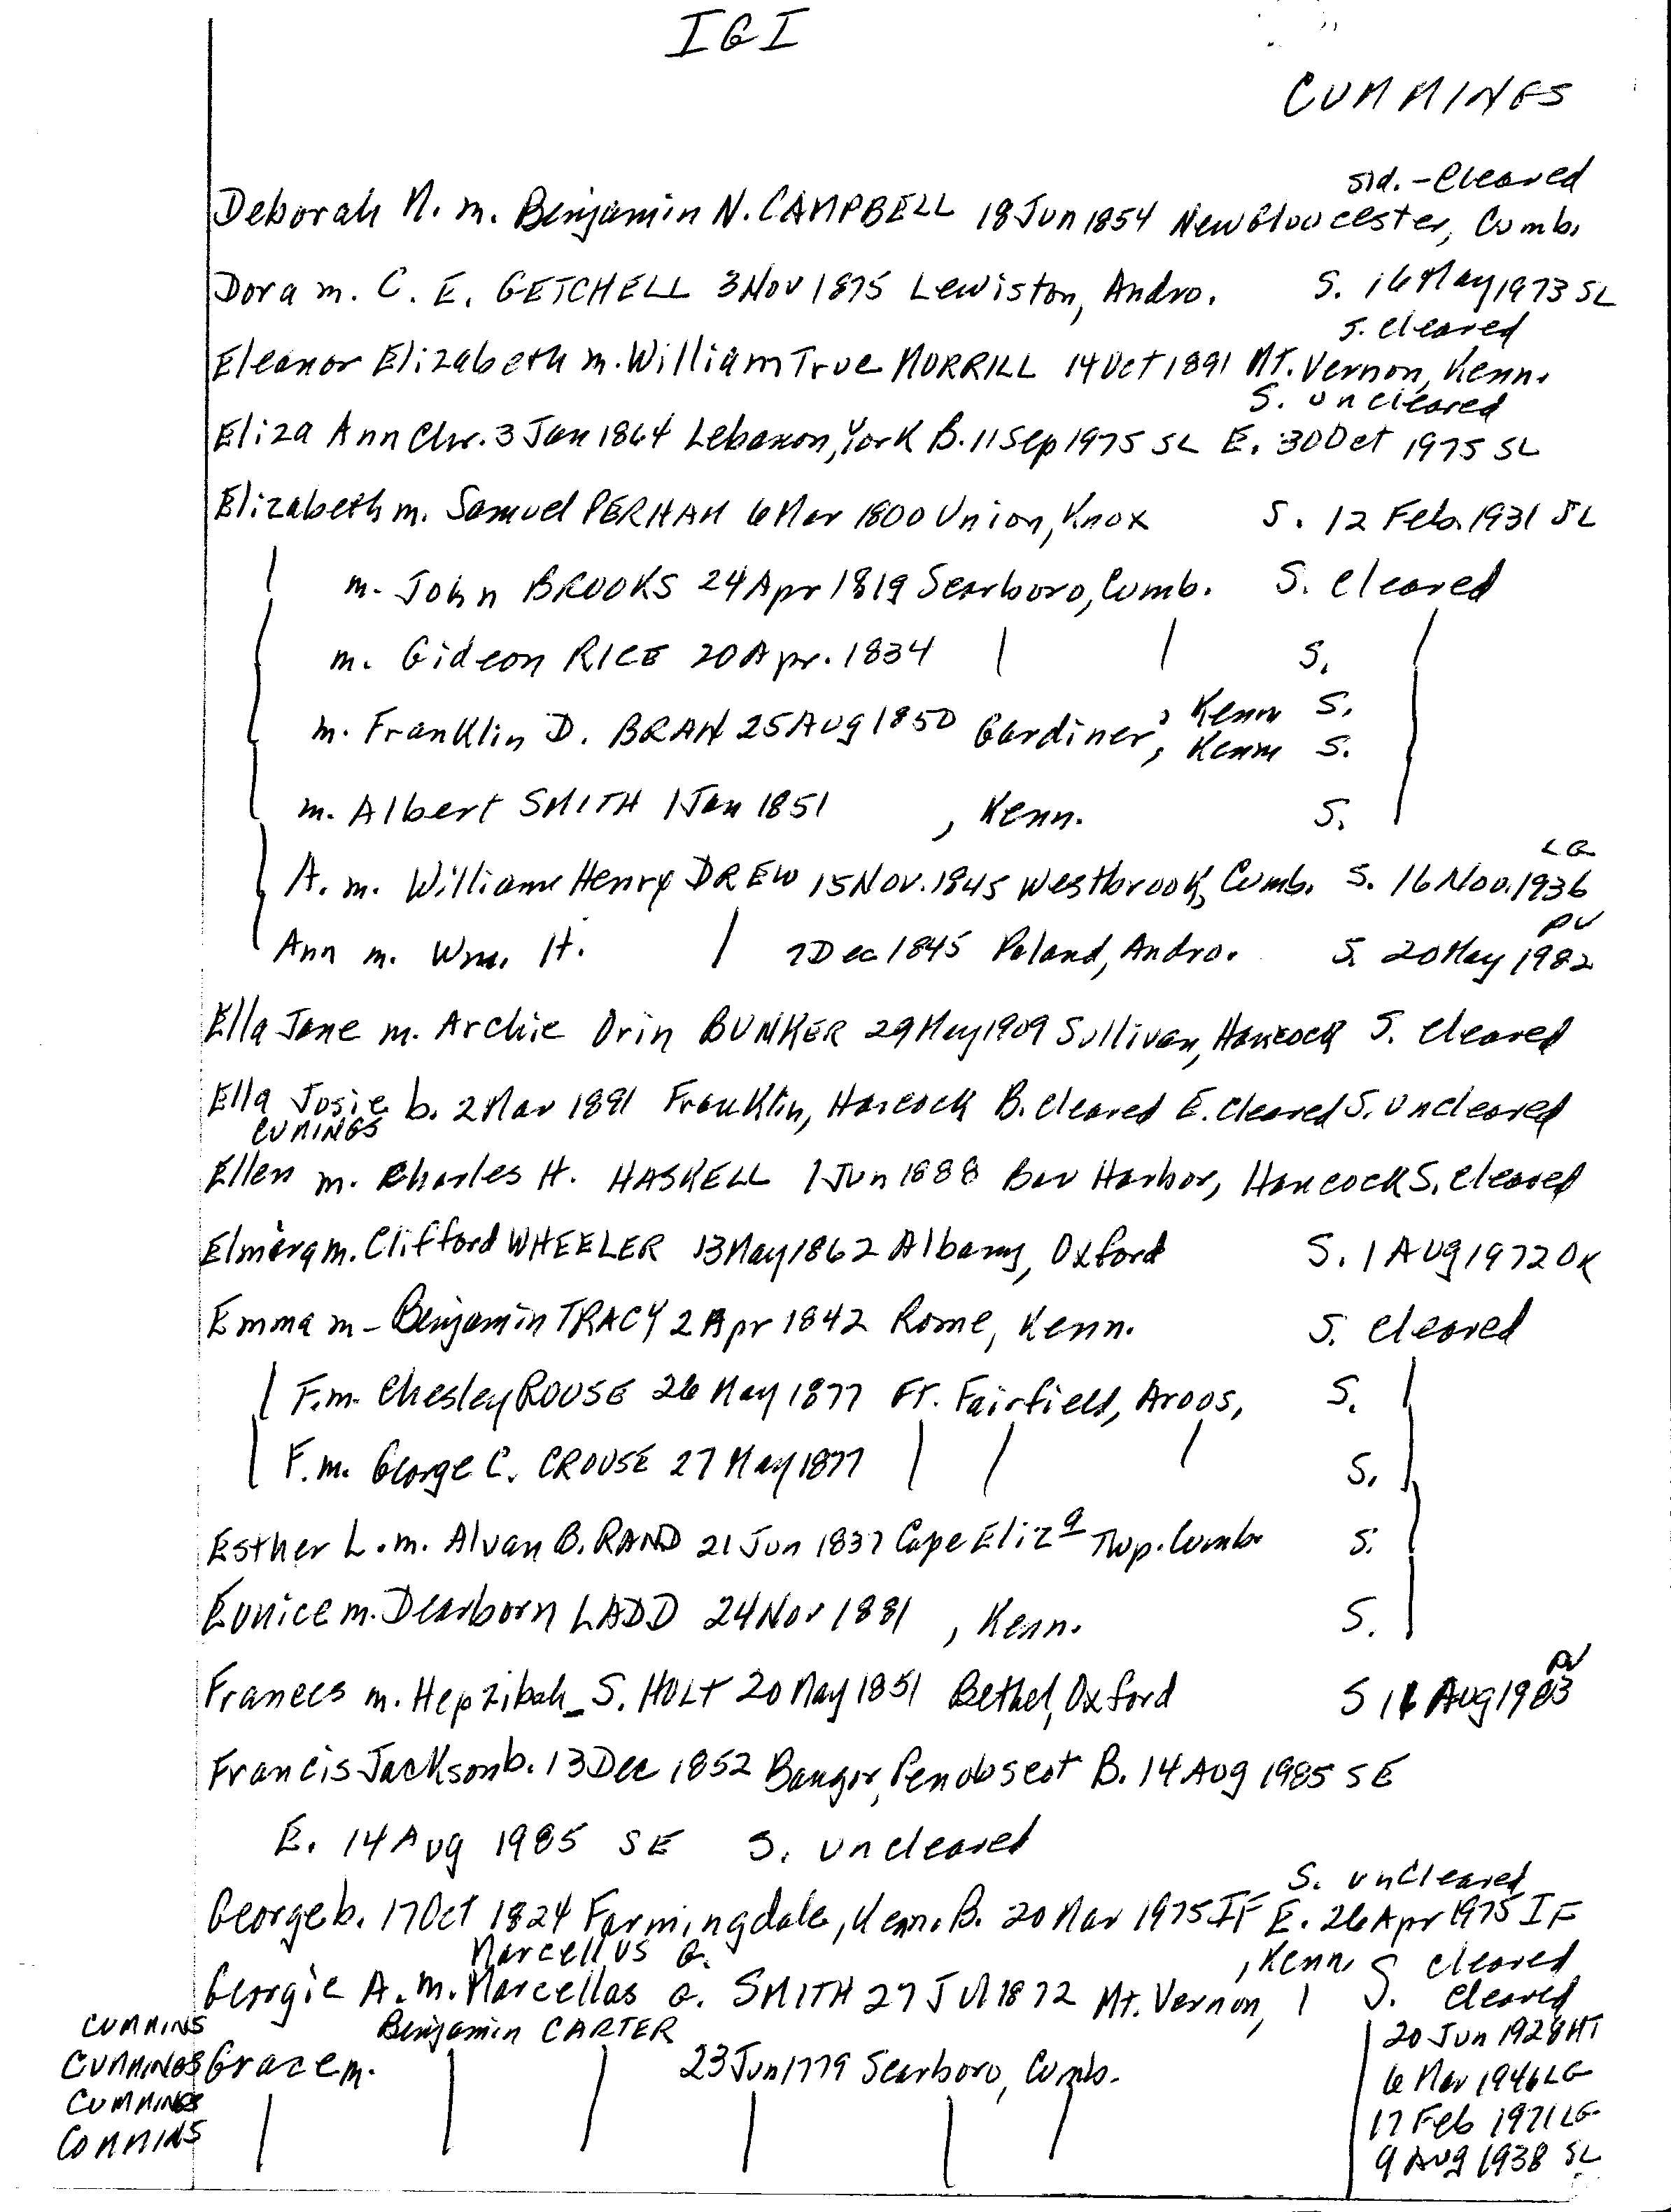 IGI
CUMMINGS
Sld. - Cleared
Deborah M. m. Benjamin N. CAMPBELL 18 Jun 1854 New Gloucester, Cumb.
Dora m. C. E. GETCHELL 3 Nov 1875 Lewiston, Andro. S. 16 May 1973 SL
S. cleared
Eleanor Elizabeth m. William True MORRILL 14 Oct 1891 Mt. Vernon, Kenn.
S. uncleared
Eliza Ann Chr. 3 Jan 1864 Lebanon, York B. 11 Sep 1975 SL E. 30 Oct 1975 SL
Elizabeth m. Samuel PERHAM 6 Mar 1800 Union, Knox S. 12 Feb. 1931 SL
m. John BROOKS 24 Apr 1819 Scarboro, Cumb. S. Cleared
m. Gideon RICE 20 Apr. 1834 S.
m. Franklin D. BRAN 25 Aug 1850 Gardiner, Kenn S.
, Kenn S.
m. Albert SMITH 1 Jan 1851 , Kenn. S.
LG
A. m. William Henry DREW 15 Nov. 1845 Westbrook, Cumb. S. 16 Nov. 1936
PV
Ann m. Wm. H. 7 Dec 1845 Poland, Andro. S. 20 May 1982
Ella Jane m. Archie Orin BUNKER 29 May 1909 Sullivan, Hancock S. Cleared
Ella Josie b. 2 Mar 1891 Franklin, Hancock B. Cleared E. Cleared S. Uncleared
CUMINGS
Ellen m. Charles H. HASKELL 1 Jun 1888 Bar Harbor, Hancock S. Cleared
Elmira m. Clifford WHEELER 13 May 1862 Albany, Oxford S. 1 Aug 1972 OK
Emma m - Benjamin TRACY 2 Apr 1842 Rome, Kenn. S. Cleared
F. m. Chesley ROUSE 26 May 1877 Ft. Fairfield, Aroos, S.
F. m. George C. CROUSE 27 May 1877 S.
Esther L. m. Alvan B. RAND 21 Jun 1837 Cape Eliza Twp. Cumb. S.
Eunice m. Dearborn LADD 24 Nov 1881 , Kenn. S.
PV
Frances m. Hepzibah_S. HOLT 20 May 1851 Bethel, Oxford S 16 Aug 1983
Francis Jackson b. 13 Dec 1852 Bangor, Penobscot B. 14 Aug 1985 SE
E. 14 Aug 1985 SE S. uncleared
S. uncleared
George b. 17 Oct 1824 Farmingdale, Kenn. B. 20 Mar 1975 IF E. 26 Apr 1975 IF
Marcellus G. , Kenn. S cleared
Georgie A. m. Marcellas G. SMITH 27 Jul 1872 Mt. Vernon, S. Cleared
CUMMINS Benjamin CARTER 20 Jun 1928 MT
CUMMINGS Grace m. 23 Jun 1779 Scarboro, Cumb. 6 Mar 1946 LG
CUMMINGS 17 Feb 1971 LG
COMMINS 9 Aug 1938 SL